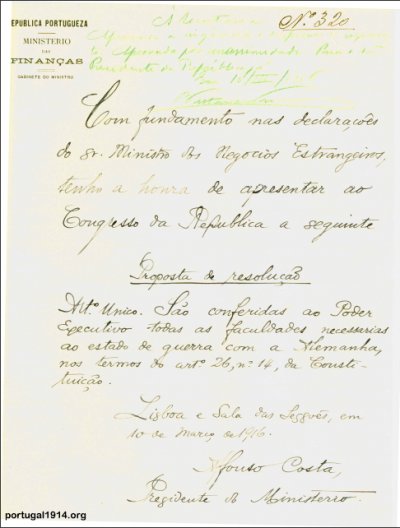 REPUBLICA PORTUGUEZA
MINISTERIO
DAS
FINANÇAS
GABINETE DO MINISTRO
Nº 320
Á Secretaria
Approvada por unanimidade. Para o Sr
Presidente da Republica
Com fundamento nas declarações
do sr. Ministro dos Negocios Estrangeiros,
tenho a honra de apresentar ao
Congresso da Republica a seguinte
Proposta de resolução
Artº Unico. São conferidas ao Poder
Executivo todas as faculdades necessarias
ao estado de guerra com a Alemanha,
nos termos do artº 26, nº 14, da Consti-
tuição.
Lisboa e Sala das Sessões, em
10 de Março, de 1916.
Afonso Costa,
Presidente do Ministerio.
portugal1914.org